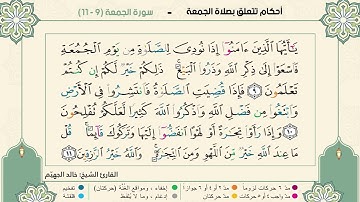 أحكام تتعلق بصلاة الجمعة - سورة الجمعة (9 - 11)
يَـٰٓأَيُّهَا ٱلَّذِينَ ءَامَنُوٓا۟ إِذَا نُودِىَ لِلصَّلَوٰةِ مِن يَوْمِ ٱلْجُمُعَةِ
فَٱسْعَوْا۟ إِلَىٰ ذِكْرِ ٱللَّهِ وَذَرُوا۟ ٱلْبَيْعَ ۚ ذَٰلِكُمْ خَيْرٌ لَّكُمْ إِن كُنتُمْ
تَعْلَمُونَ ٩ فَإِذَا قُضِيَتِ ٱلصَّلَوٰةُ فَٱنتَشِرُوا۟ فِى ٱلْأَرْضِ
وَٱبْتَغُوا۟ مِن فَضْلِ ٱللَّهِ وَٱذْكُرُوا۟ ٱللَّهَ كَثِيرًا لَّعَلَّكُمْ تُفْلِحُونَ
١٠ وَإِذَا رَأَوْا۟ تِجَـٰرَةً أَوْ لَهْوًا ٱنفَضُّوٓا۟ إِلَيْهَا وَتَرَكُوكَ قَآئِمًا ۚ قُلْ
مَا عِندَ ٱللَّهِ خَيْرٌ مِّنَ ٱللَّهْوِ وَمِنَ ٱلتِّجَـٰرَةِ ۚ وَٱللَّهُ خَيْرُ ٱلرَّٰزِقِينَ ١١
القارئ الشيخ: خالد الجهيّم
مدّ ٦ حركات لزوماً مدّ ٢ أو ٤ أو ٦ جوازاً إخفاء، ومواقع الغُنَّة (حركتان) تفخيم
مدّ واجب ٤ أو ٥ حركات مدّ حركتان إدغام، وما لا يُلفَظ قلقلة